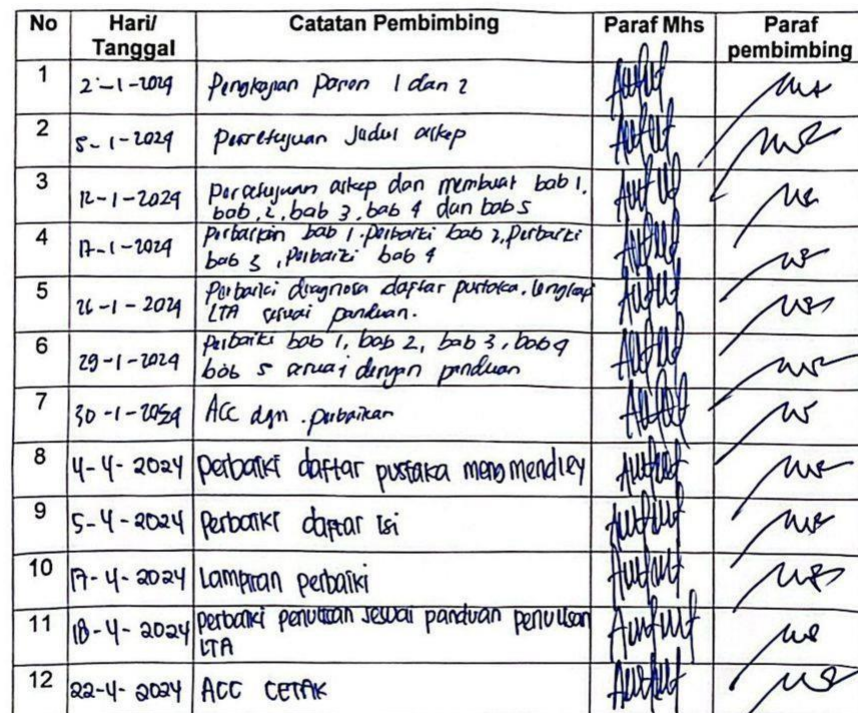 No Hari/ Catatan Pembimbing Paraf Mhs Paraf
Tanggal pembimbing
1 2-1-2024 Pengkajian Pasien 1 dan 2
2 5-1-2024 Persetujuan Judul askep
3 12-1-2024 Persetujuan askep dan membuat bab 1,
bab, 2, bab 3, bab 4 dan bab 5
4 17-1-2024 perbaikin bab 1. Perbaiki bab 2, Perbaiki
bab 3, Perbaiki bab 4
5 26-1-2024 Perbaiki diagnosa daftar pustaka, lengkapi
LTA sesuai panduan.
6 29-1-2024 Perbaiki bab 1, bab 2, bab 3, bab 4
bab 5 sesuai dengan panduan
7 30-1-2024 ACC dgn. perbaikan
8 4-4-2024 Perbaiki daftar pustaka meng mendley
9 5-4-2024 Perbaiki daftar isi
10 17-4-2024 Lampiran perbaiki
11 18-4-2024 perbaiki penulisan sesuai panduan penulisan
LTA
12 22-4-2024 ACC CETAK